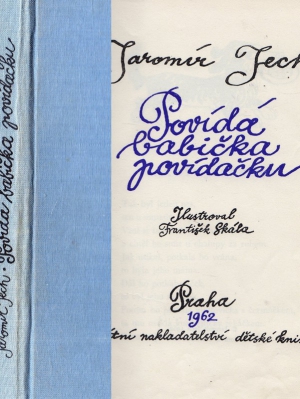 Jaromír Jech · Povídá babička povídačku
Jaromír Jech
Povídá
babička
povídačku
Ilustroval
František Skála
Praha
1962
tní nakladatelství dětské kni